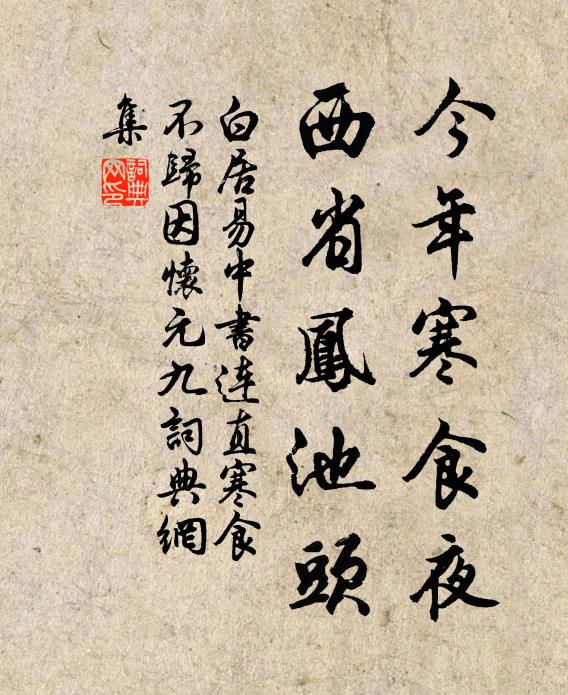 今年寒食夜
西省鳳池頭
白居易中書連直寒食
不歸因懷元九詞典網
集
詞典
網印